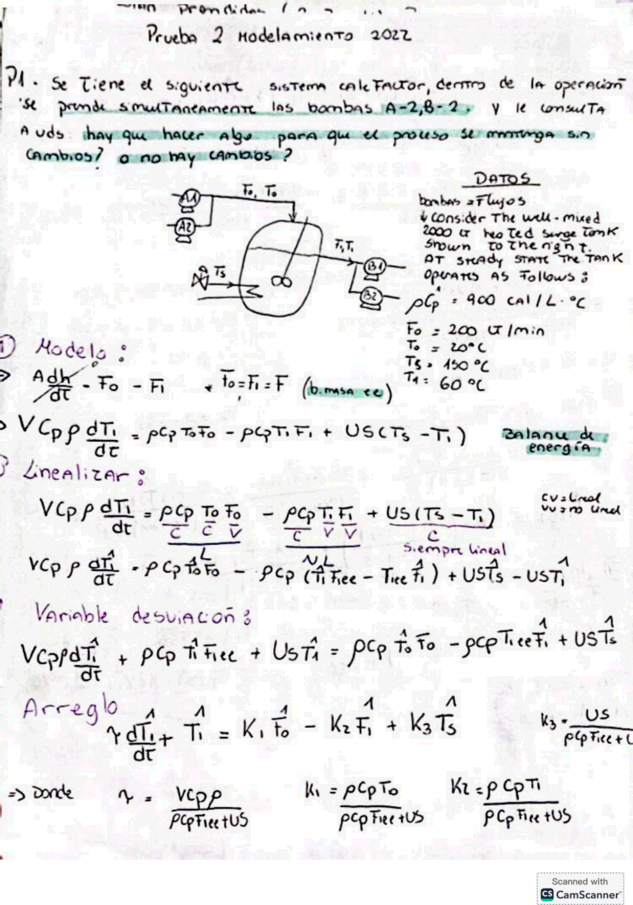 Prueba 2 Modelamiento 2022
P1. Se Tiene el siguiente sistema calefactor, dentro de la operación
se prende simultaneamente las bombas A-2, B-2. y le consulta
A uds hay que hacer algo para que el proceso se mantenga sin
cambios? o no hay cambios?
DATOS
bombas = Flujos
↓ consider The well-mixed
2000 lt heated surge Tank
shown to the right.
AT steady state The Tank
operates as follows:
ρCp = 900 cal/L·°C
F₀ = 200 lt/min
T₀ = 20°C
Ts = 150°C
T₁ = 60°C
A1
A2
F₀, T₀
Ts
F₁, T₁
B1
B2
① Modelo:
A dh/dτ = F₀ - F₁ . F₀ = F₁ = F (b. masa ee)
VCpρ dT₁/dτ = ρCp T₀F₀ - ρCpT₁F₁ + US(Ts - T₁) Balance de energía
Linealizar:
VCpρ dT₁/dτ = ρCp T₀ F₀ - ρCp T₁ F₁ + US(Ts - T₁)
C C V C V V C
CV = Lineal
VV = no lineal
L NL siempre lineal
VCpρ dT̂₁/dτ = ρCp T₀F̂₀ - ρCp (T̂₁ F₁ee - T₁ee F̂₁) + UST̂s - UST̂₁
Variable desviación:
VCpρ dT̂₁/dτ + ρCp T̂₁ F₁ee + UST̂₁ = ρCp T₀ F̂₀ - ρCpT₁ee F̂₁ + UST̂s
Arreglo
τ dT̂₁/dτ + T̂₁ = K₁ F̂₀ - K₂ F̂₁ + K₃ T̂s
K₃ = US/ρCpF₁ee+U
⇒ Donde τ = VCpρ/ρCpF₁ee+US K₁ = ρCpT₀/ρCpF₁ee+US K₂ = ρCpT₁/ρCpF₁ee+US
Scanned with
CS CamScanner